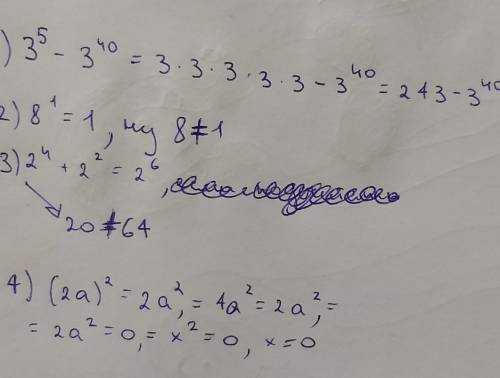 ) 3⁵ - 3⁴⁰ = 3 · 3 · 3 · 3 · 3 - 3⁴⁰ = 243 - 3⁴⁰
2) 8¹ = 1, ну 8 ≠ 1
3) 2⁴ + 2² = 2⁶,
20 ≠ 64
4) (2a)² = 2a², = 4a² = 2a², =
= 2a² = 0, = x² = 0, x = 0